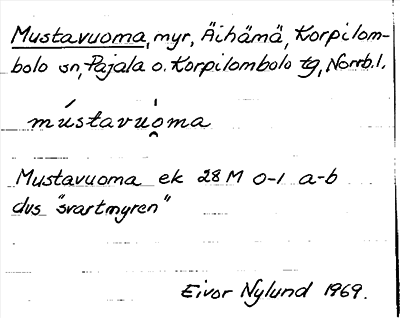 Mustavuoma, myr, Äihämä, Korpilom-
bolo sn, Pajala o. Korpilombolo tg, Norrb.l.
mústavu̯ȯma
Mustavuoma ek 28 M 0-1 a-b
dvs "svartmyren"
Eivor Nylund 1969.